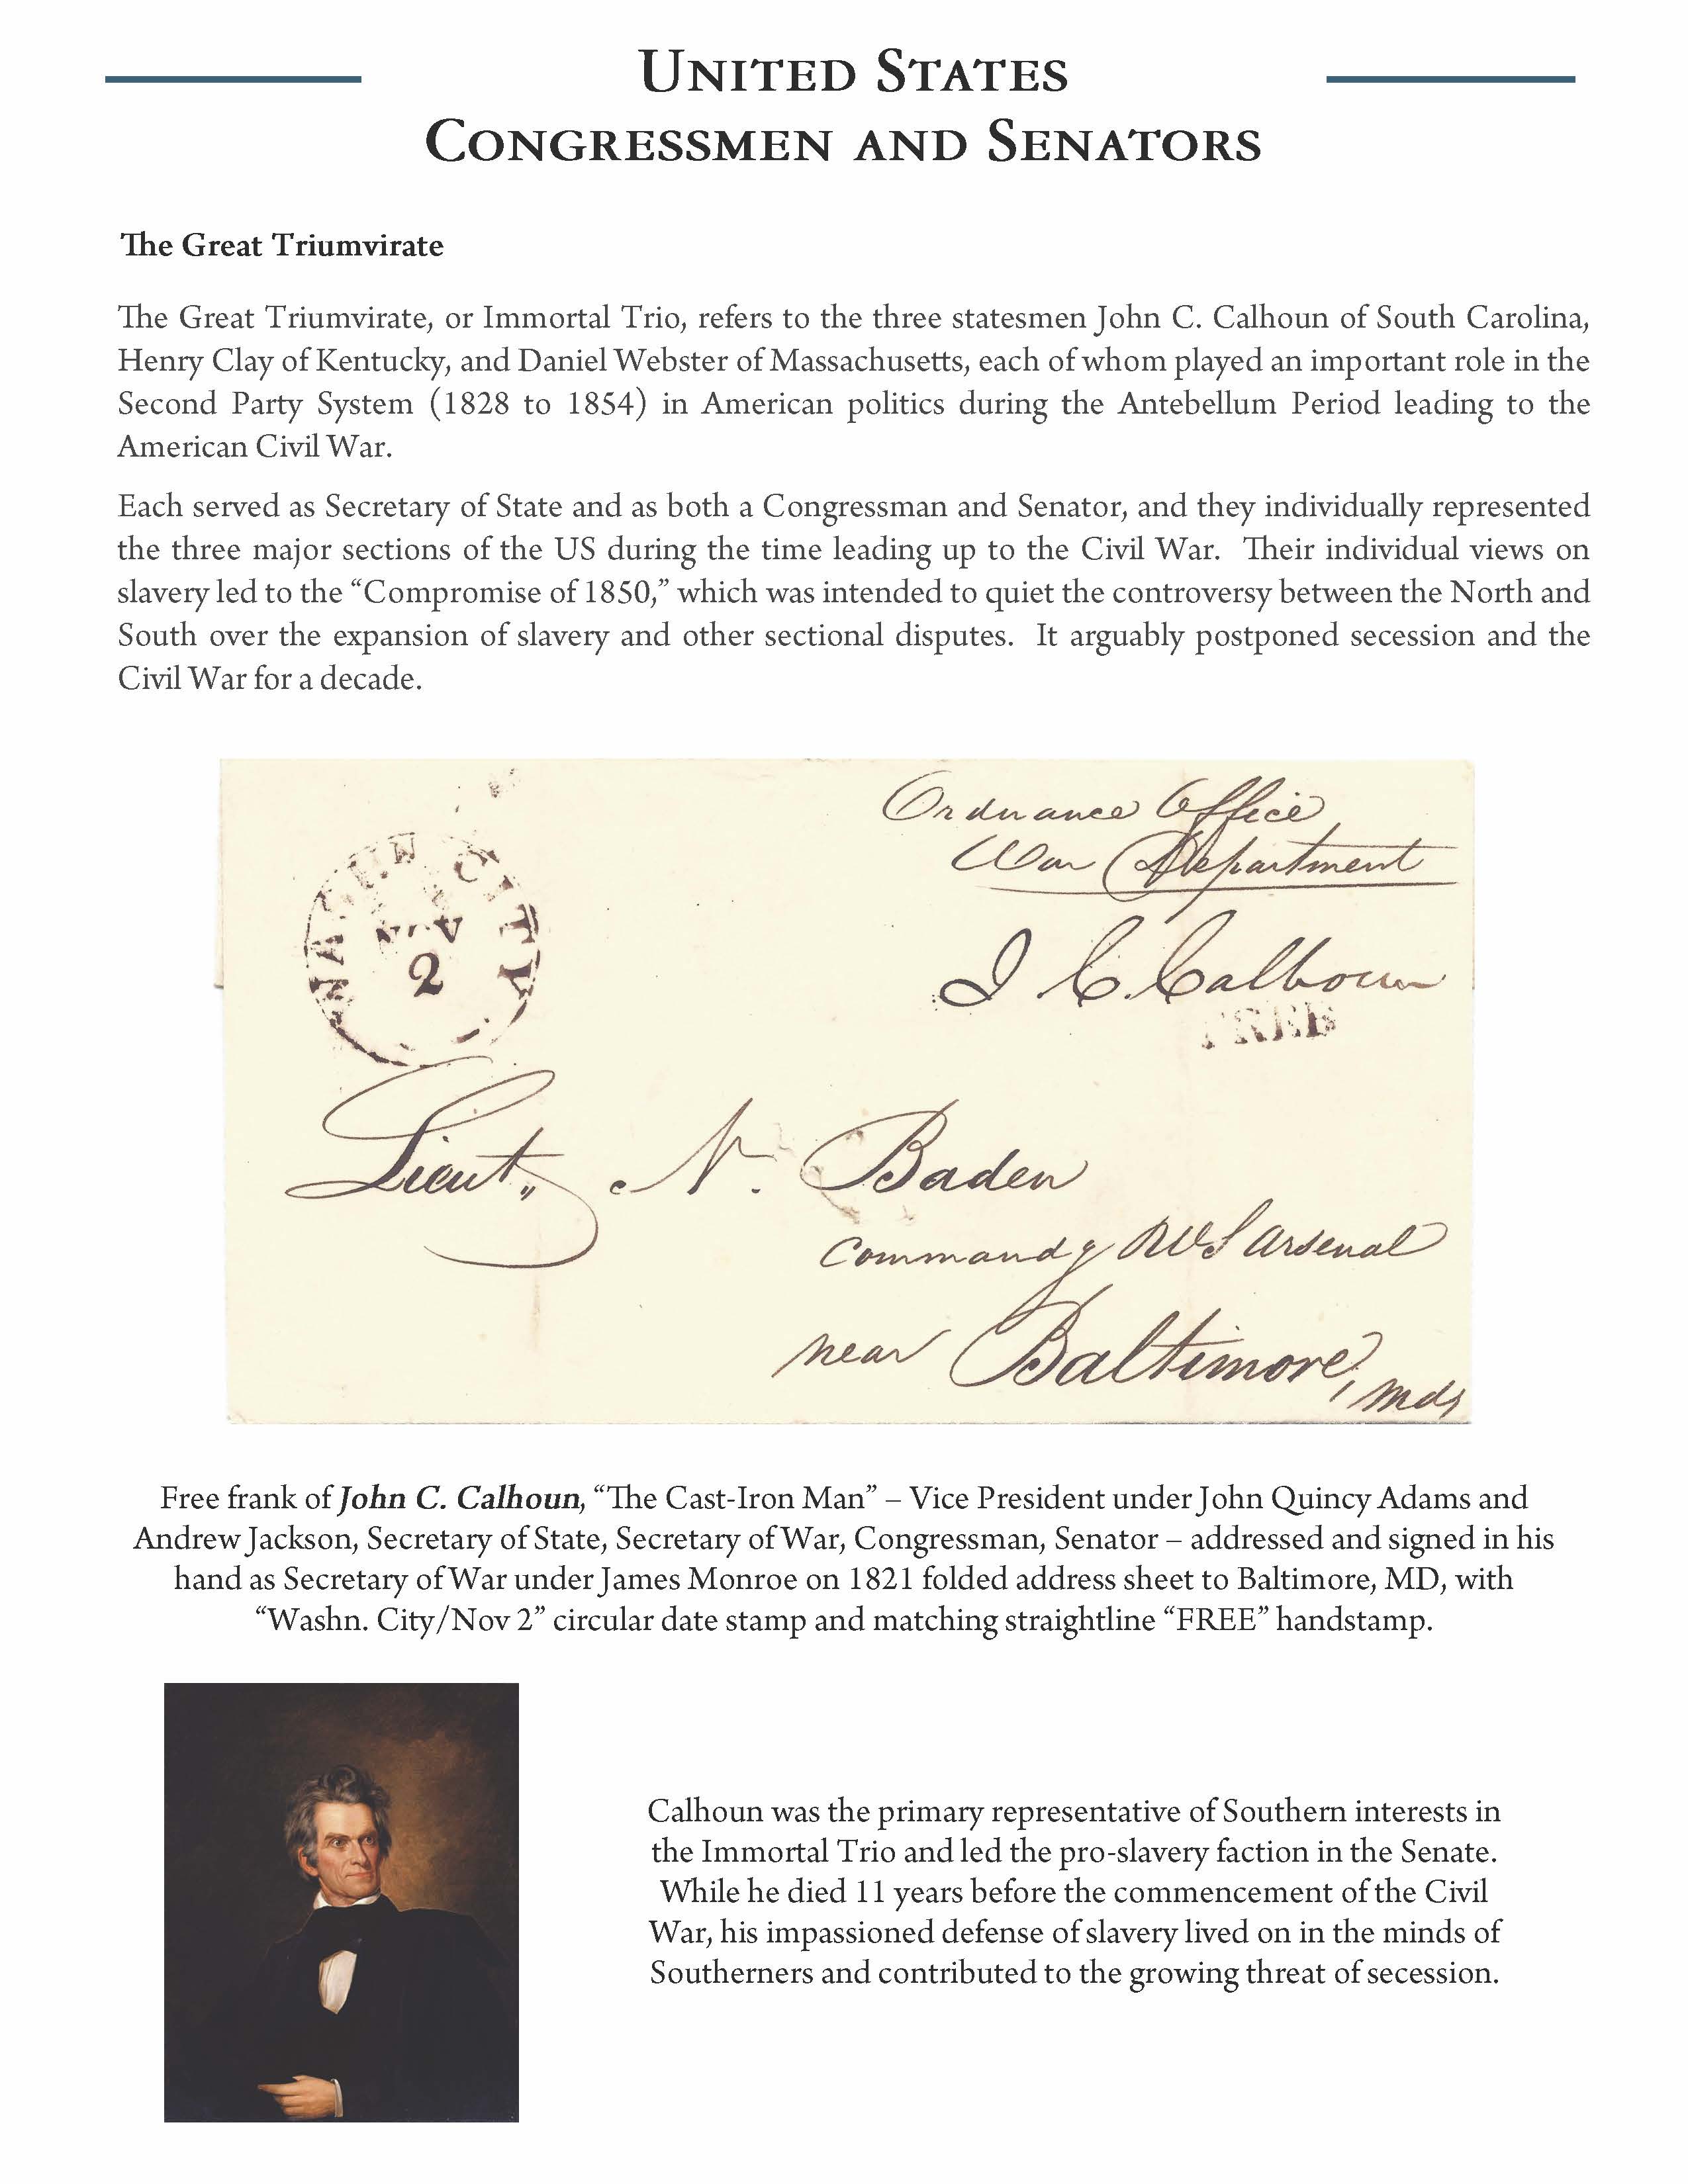 UNITED STATES
CONGRESSMEN AND SENATORS
The Great Triumvirate
The Great Triumvirate, or Immortal Trio, refers to the three statesmen John C. Calhoun of South Carolina,
Henry Clay of Kentucky, and Daniel Webster of Massachusetts, each of whom played an important role in the
Second Party System (1828 to 1854) in American politics during the Antebellum Period leading to the
American Civil War.
Each served as Secretary of State and as both a Congressman and Senator, and they individually represented
the three major sections of the US during the time leading up to the Civil War. Their individual views on
slavery led to the “Compromise of 1850,” which was intended to quiet the controversy between the North and
South over the expansion of slavery and other sectional disputes. It arguably postponed secession and the
Civil War for a decade.
Ordnance Office
War Department
WASHN CITY
NOV
2
J C. Calhoun
FREE
Lieut, N. Baden
Commandg US Arsenal
near Baltimore,
Md,
Free frank of John C. Calhoun, “The Cast-Iron Man” – Vice President under John Quincy Adams and
Andrew Jackson, Secretary of State, Secretary of War, Congressman, Senator – addressed and signed in his
hand as Secretary of War under James Monroe on 1821 folded address sheet to Baltimore, MD, with
“Washn. City/Nov 2” circular date stamp and matching straightline “FREE” handstamp.
Calhoun was the primary representative of Southern interests in
the Immortal Trio and led the pro-slavery faction in the Senate.
While he died 11 years before the commencement of the Civil
War, his impassioned defense of slavery lived on in the minds of
Southerners and contributed to the growing threat of secession.